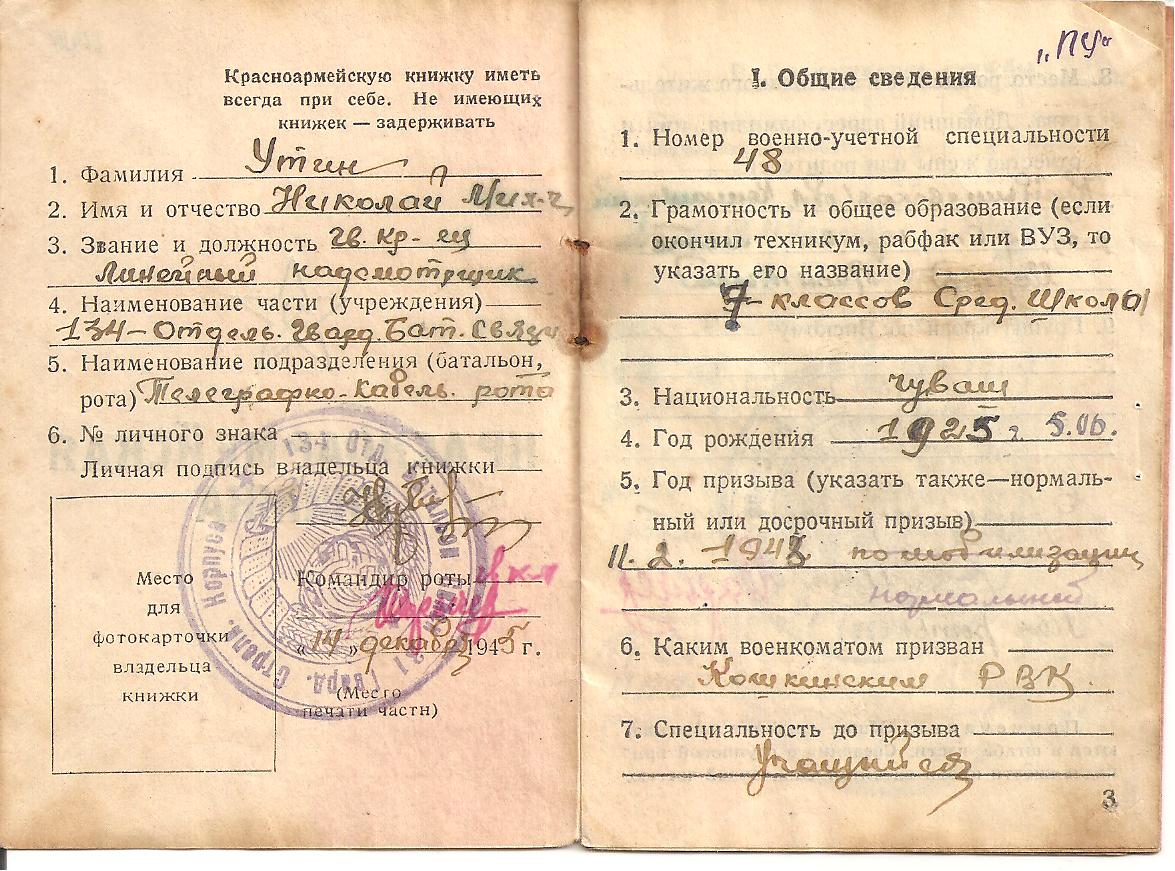 Красноармейскую книжку иметь
всегда при себе. Не имеющих
книжек — задерживать
1. Фамилия Утин
2. Имя и отчество Николай Мих-ч
3. Звание и должность гв. кр-ец
линейный надсмотрщик
4. Наименование части (учреждения)
134-Отдель. Гвард. Бат. Связи
5. Наименование подразделения (батальон,
рота) Телеграфно-Кабель. рота
6. № личного знака
Личная подпись владельца книжки
Место
для
фотокарточки
владельца
книжки
Командир роты
«14» декабря 1945 г.
(Место
печати части)
134 Отд. Батальон Связи 21 Гвард. Стрелк. Корпуса
„ПУ“
I. Общие сведения
1. Номер военно-учетной специальности
48
2. Грамотность и общее образование (если
окончил техникум, рабфак или ВУЗ, то
указать его название)
7-классов Сред. Школы
3. Национальность чуваш
4. Год рождения 1925 г. 5.06.
5. Год призыва (указать также—нормаль-
ный или досрочный призыв)
11.2. 1943 по мобилизации
нормальный
6. Каким военкоматом призван
Кошкинским РВК.
7. Специальность до призыва
Учащийся
3